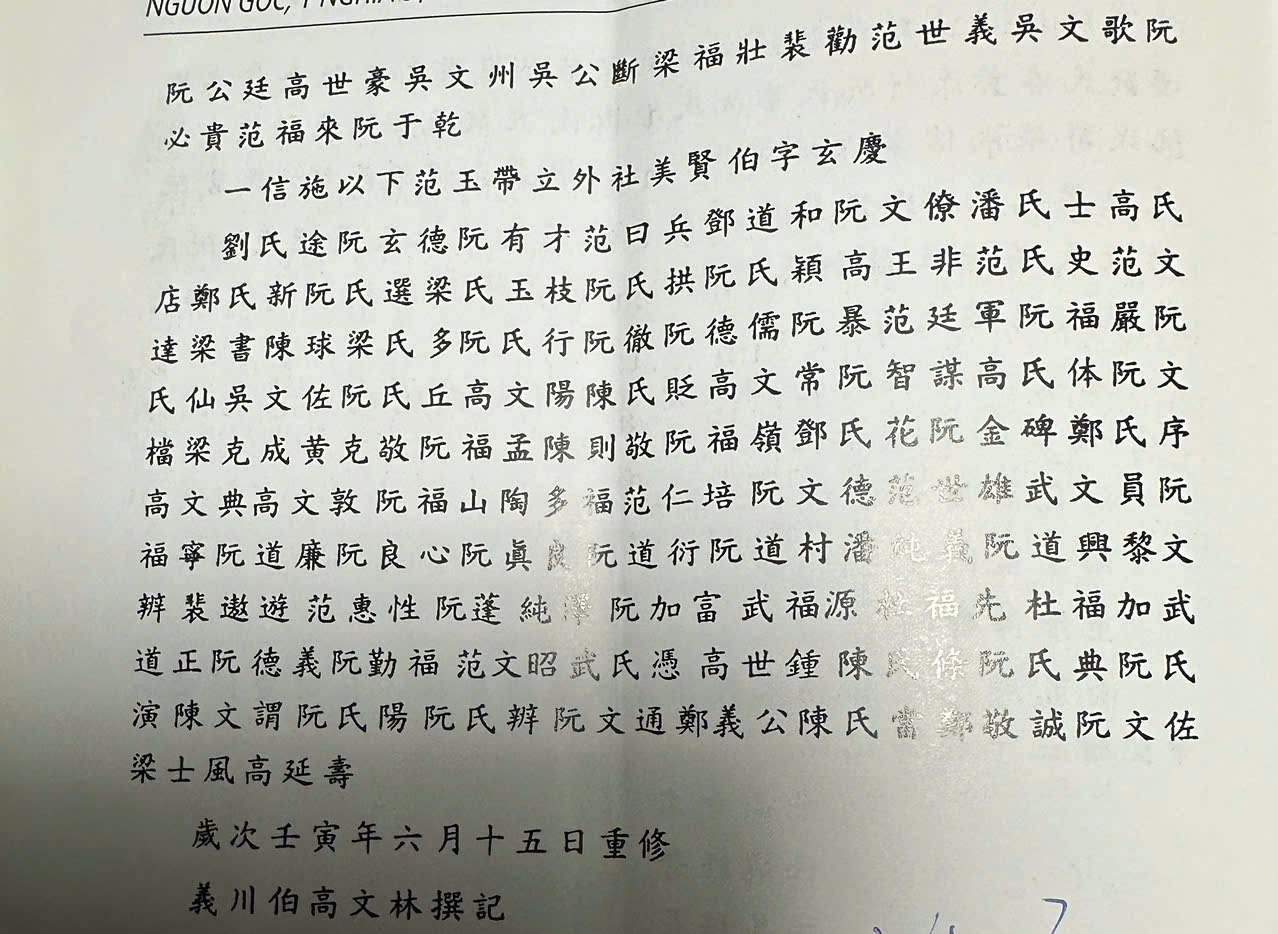 NGUỒN GỐC, Ý NGHĨA
阮公廷高世豪吳文州吳公斷梁福壯裴勸范世義吳文歌阮
必貴范福來阮于乾
一信施以下范玉帶立外社美賢伯字玄慶
劉氏途阮玄德阮有才范曰兵鄧道和阮文僚潘氏士高氏
店鄭氏新阮氏選梁氏玉枝阮氏拱阮氏穎高王非范氏史范文
達梁書陳球梁氏多阮氏行阮徹阮德儒阮暴范廷軍阮福嚴阮
氏仙吳文佐阮氏丘高文陽陳氏貶高文常阮智謀高氏体阮文
檔梁克成黄克敬阮福孟陳則敬阮福嶺鄧氏花阮金碑鄭氏序
高文典高文敦阮福山陶多福范仁培阮文德范世雄武文員阮
福寧阮道廉阮良心阮眞良阮道衍阮道村潘純義阮道興黎文
辨裴遨遊范惠性阮蓬純澤阮加富武福源杜福先杜福加武
道正阮德義阮勤福范文昭武氏憑高世鍾陳氏條阮氏典阮氏
演陳文謂阮氏陽阮氏辨阮文通鄭義公陳氏富鄭敬誠阮文佐
梁士風高延壽
歲次壬寅年六月十五日重修
義川伯高文林撰記